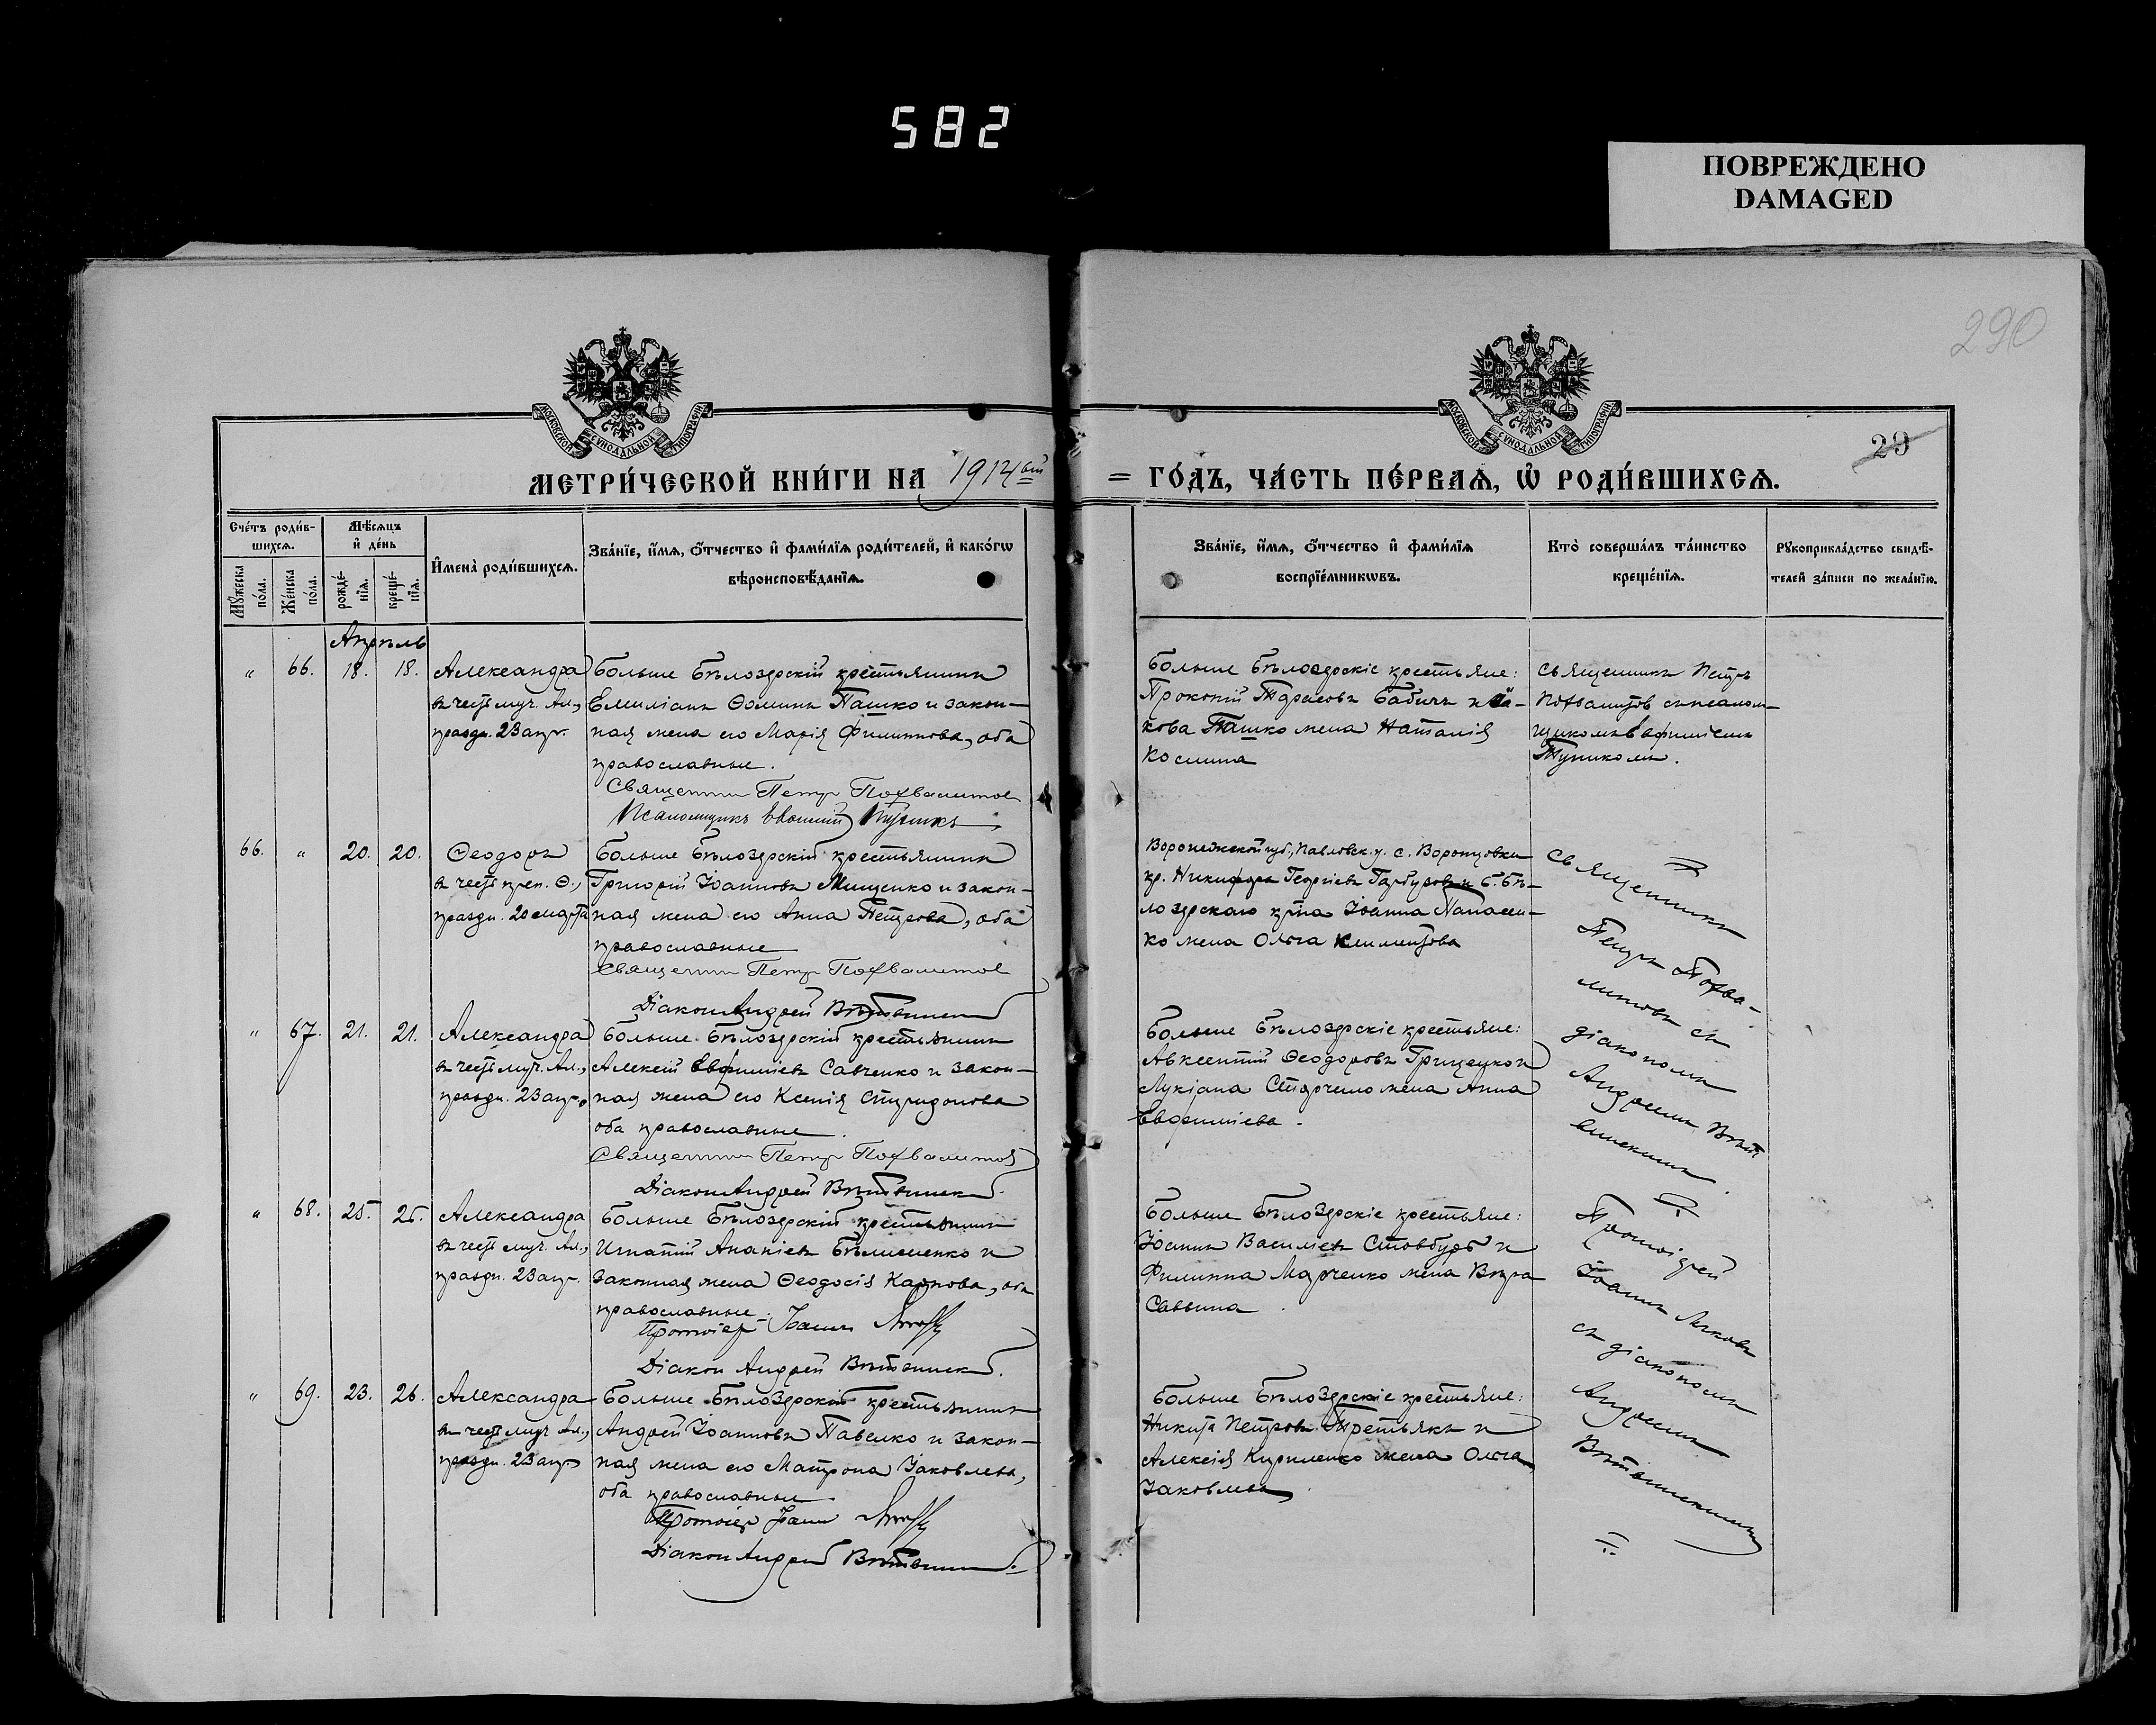 582
ПОВРЕЖДЕНО
DAMAGED
290
МОСКОВСКОЙ СѴНОДАЛЬНОЙ ТИПОГРАФІИ
МОСКОВСКОЙ СѴНОДАЛЬНОЙ ТИПОГРАФІИ
29
МЕТРИ́ЧЕСКОЙ КНИ́ГИ НА 1914ый
= ГО́ДЪ, ЧА́СТЬ ПЕ́РВАѦ, Ѡ҆ РОДИ́ВШИХСѦ.
Сче́тъ роди́в-
шихсѧ.
Мѣ́сѧцъ
и҆ де́нь
Мꙋ́жеска
по́ла.
Же́нска
по́ла.
рожде́-
нїѧ.
креще́-
нїѧ.
И҆мена̀ роди́вшихсѧ.
Зва́нїе, и҆́мѧ, ѻ҆́тчество и҆ фами́лїѧ роди́телей, и҆ како́гѡ
вѣроисповѣ́данїѧ.
Зва́нїе, и҆́мѧ, ѻ҆́тчество и҆ фами́лїѧ
воспрїе́мникѡвъ.
Кто̀ соверша́лъ та́инство
креще́нїѧ.
Рꙋкоприкла́дство свидѣ́-
телей за́писи по жела́нїю.
Апрѣль
" 66. 18. 18.
Александра
въ честь муч. Ал.,
праздн. 23 апр.
Больше Бѣлозерскій крестьянинъ
Емиліанъ Ѳоминъ Пашко и закон-
ная жена его Марія Филиппова, оба
православные.
Священникъ Петръ Похвалитовъ
Псаломщикъ Евѳимій
Больше Бѣлозерскіе крестьяне:
Прокопій Тарасовъ Бабичъ и Іа-
кова Пашко жена Наталія
Космина
Священникъ Петръ
Похвалитовъ съ псалом-
щикомъ Евфиміемъ
66. " 20. 20.
Ѳеодоръ
въ честь преп. Ѳ.,
праздн. 20 марта
Больше Бѣлозерскій крестьянинъ
Григорій Іоанновъ Мищенко и закон-
ная жена его Анна Петрова, оба
православные
Священникъ Петръ Похвалитовъ
Діаконъ Андрей
Воронежской губ., Павловск. у. с. Воронцовки
кр. Никифоръ Георгіевъ и Б. Бѣ-
лозерскаго кр-на Іоанна Панасен-
ко жена Ольга Климентова
Священникъ
Петръ Похва-
литовъ съ
діакономъ
Андреемъ
" 67. 21. 21.
Александра
въ честь муч. Ал.,
праздн. 23 апр.
Больше Бѣлозерскій крестьянинъ
Алексій Евфиміевъ Савченко и закон-
ная жена его Ксенія Спиридонова
оба православные.
Священникъ Петръ Похвалитовъ
Діаконъ Андрей
Больше Бѣлозерскіе крестьяне:
Авксентій Ѳеодоровъ Грищенко и
Лукіана жена Анна
Евфиміева.
" 68. 25. 25.
Александра
въ честь муч. Ал.,
праздн. 23 апр.
Больше Бѣлозерскій крестьянинъ
Игнатій Ананіевъ и
законная жена Ѳеодосія Карпова, оба
православные.
Протоіер. Іоаннъ
Діаконъ Андрей
Больше Бѣлозерскіе крестьяне:
Іоаннъ Василіевъ Стовбуръ и
Филиппа Марченко жена Вѣра
Саввина.
Протоіерей
Іоаннъ
съ діакономъ
Андреемъ
" 69. 23. 26.
Александра
въ честь муч. Ал.,
праздн. 23 апр.
Больше Бѣлозерскій крестьянинъ
Андрей Іоанновъ Павенко и закон-
ная жена его Матрона Іаковлева,
оба православные.
Протоіер. Іоаннъ
Діаконъ Андрей
Больше Бѣлозерскіе крестьяне:
Никита Петровъ Третьякъ и
Алексія Кириленко жена Ольга
Іаковлева.